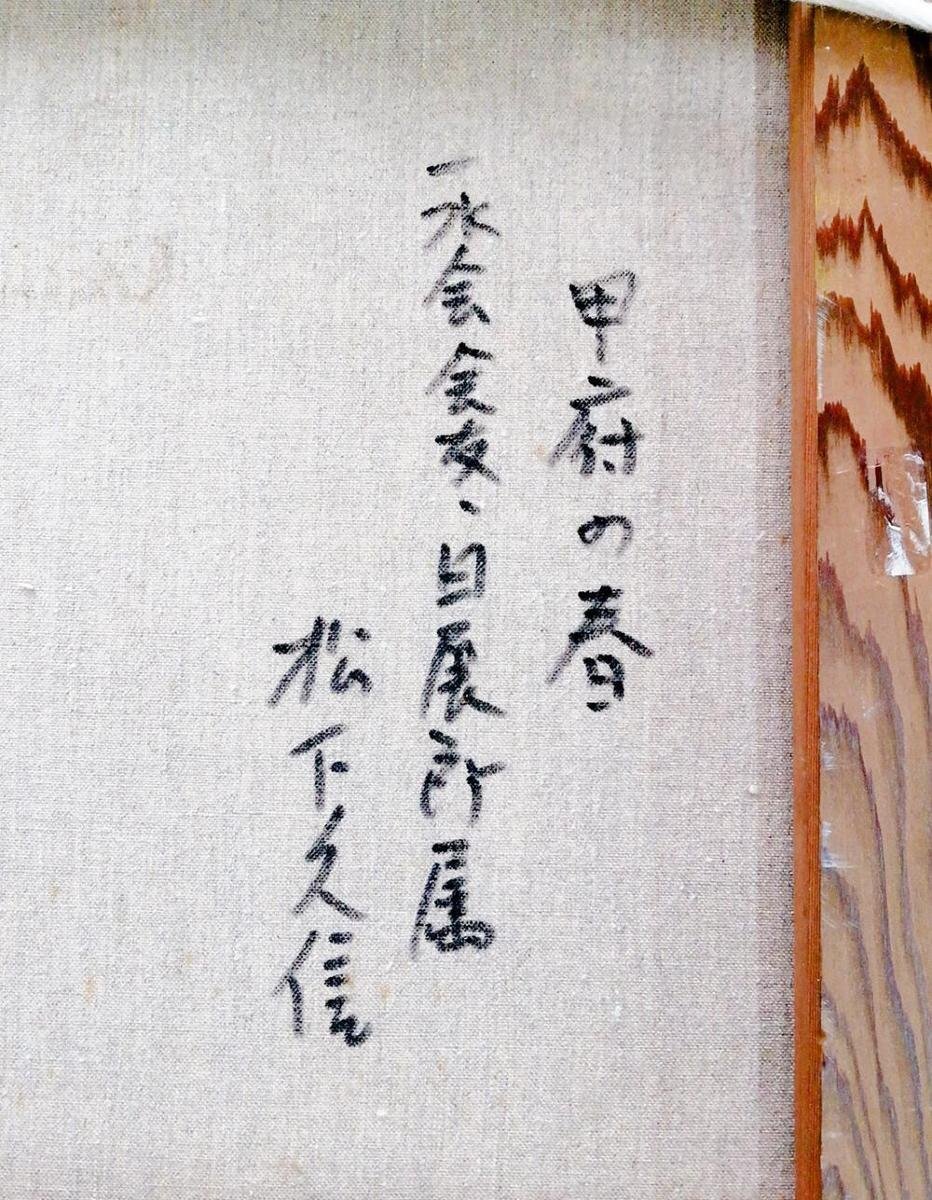 甲府の春
一水会会友・日展所属
松下久信